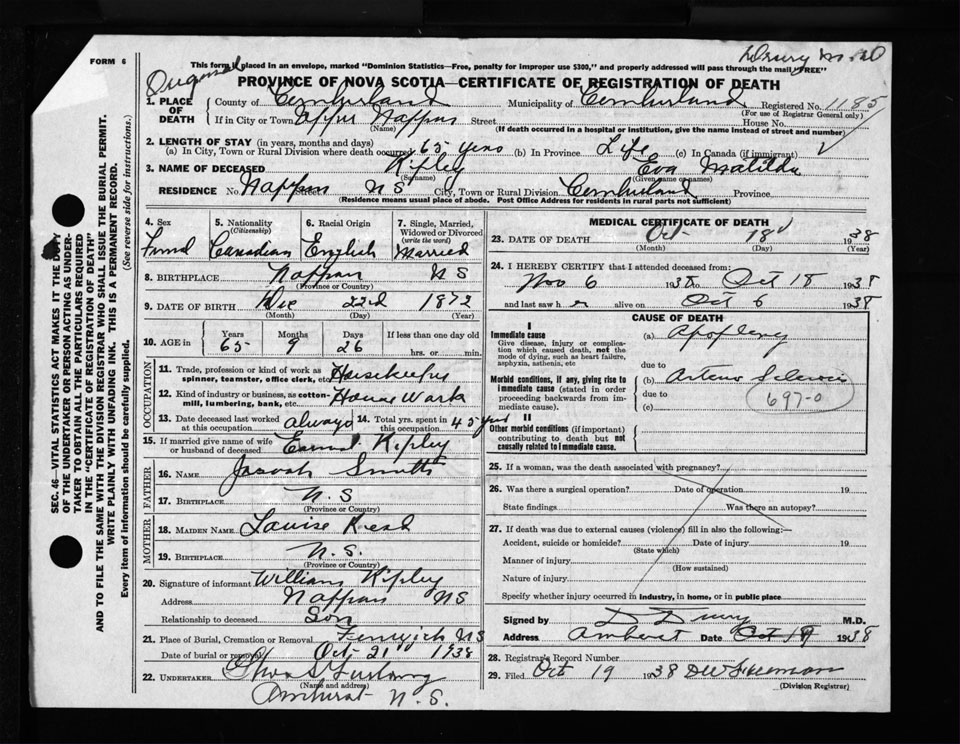 FORM 6
Drury M.D.
This form if placed in an envelope, marked "Dominion Statistics—Free, penalty for improper use $300," and properly addressed will pass through the mail "FREE"
Original
PROVINCE OF NOVA SCOTIA—CERTIFICATE OF REGISTRATION OF DEATH
1. PLACE OF DEATH
County of Cumberland Municipality of Cumberland Registered No. 1185
(For use of Registrar General only)
If in City or Town Upper Nappan Street House No.
(Name) (If death occurred in a hospital or institution, give the name instead of street and number)
2. LENGTH OF STAY (in years, months and days)
(a) In City, Town or Rural Division where death occurred 65 years (b) In Province Life (c) In Canada (if immigrant)
3. NAME OF DECEASED Ripley Eva Matilda
(Surname) (Given name or names)
RESIDENCE No. Nappan Street N S City, Town or Rural Division Cumberland Province
(Residence means usual place of abode. Post Office Address for residents in rural parts not sufficient)
4. Sex
5. Nationality (Citizenship)
6. Racial Origin
7. Single, Married, Widowed or Divorced (write the word)
Canadian English Married
8. BIRTHPLACE Nappan N S
(Province or Country)
9. DATE OF BIRTH Dec 22nd 1872
(Month) (Day) (Year)
10. AGE in
Years Months Days If less than one day old
65 9 26 hrs. or min.
OCCUPATION
11. Trade, profession or kind of work as spinner, teamster, office clerk, etc. Housekeeper
12. Kind of industry or business, as cotton-mill, lumbering, bank, etc. House Work
13. Date deceased last worked at this occupation always 14. Total yrs. spent in this occupation 45 yrs
15. If married give name of wife or husband of deceased Ripley
FATHER
16. NAME Smith
17. BIRTHPLACE N. S
(Province or Country)
MOTHER
18. MAIDEN NAME Louise
19. BIRTHPLACE N. S.
(Province or Country)
20. Signature of informant William Ripley
Address Nappan N S
Relationship to deceased Son
21. Place of Burial, Cremation or Removal Fenwick N S
Date of burial or removal Oct 21 1938
22. UNDERTAKER Furlong
(Name and address)
Amherst N. S.
MEDICAL CERTIFICATE OF DEATH
23. DATE OF DEATH Oct 18 1938
(Month) (Day) (Year)
24. I HEREBY CERTIFY that I attended deceased from:
Nov 6 1938 to Oct 18 1938
and last saw her alive on Oct 6 1938
CAUSE OF DEATH
I
Immediate cause
Give disease, injury or complication which caused death, not the mode of dying, such as heart failure, asphyxia, asthenia, etc
(a) Apoplexy
due to
Morbid conditions, if any, giving rise to immediate cause (stated in order proceeding backwards from immediate cause).
(b) Arterio Sclerosis
due to
(c)
697-0
II
Other morbid conditions (if important) contributing to death but not causally related to immediate cause.
25. If a woman, was the death associated with pregnancy?
26. Was there a surgical operation? Date of operation 19
State findings Was there an autopsy?
27. If death was due to external causes (violence) fill in also the following:
Accident, suicide or homicide? Date of injury 19
(State which)
Manner of injury
(How sustained)
Nature of injury
Specify whether injury occurred in industry, in home, or in public place
Signed by D Drury M.D.
Address Amherst Date Oct 19 1938
28. Registrar's Record Number
29. Filed Oct 19 1938
(Division Registrar)
SEC. 46—VITAL STATISTICS ACT MAKES IT THE DUTY
OF THE UNDERTAKER OR PERSON ACTING AS UNDER-
TAKER TO OBTAIN ALL THE PARTICULARS REQUIRED
IN THE "CERTIFICATE OF REGISTRATION OF DEATH"
AND TO FILE THE SAME WITH THE DIVISION REGISTRAR WHO SHALL ISSUE THE BURIAL PERMIT.
WRITE PLAINLY WITH UNFADING INK. THIS IS A PERMANENT RECORD.
Every item of information should be carefully supplied. (See reverse side for instructions.)